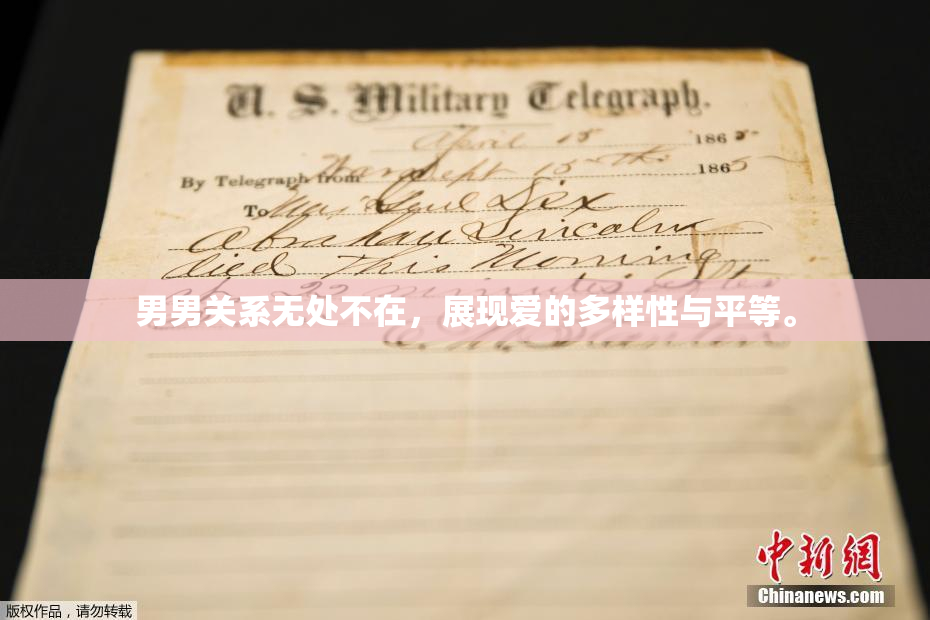 U. S. Military Telegraph.
April 15 1865
By Telegraph from War Dept 15th 1865
To Maj Genl Dix
Abraham Lincoln
died This Morning
at 22 minutes after
男男关系无处不在，展现爱的多样性与平等。
中新网
Chinanews.com
版权作品，请勿转载